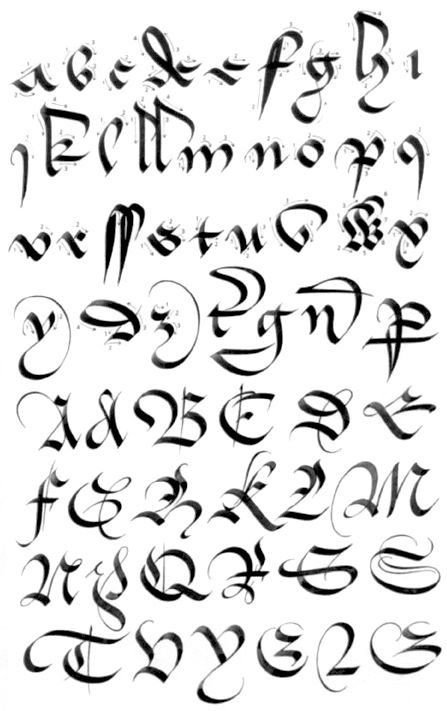 a b c d e f g h i
j k l ll m n o p q
r r ſſ s t u v w x
y z g n p
A A B C D E
F G H K L M
N P Q R S S
T V Y